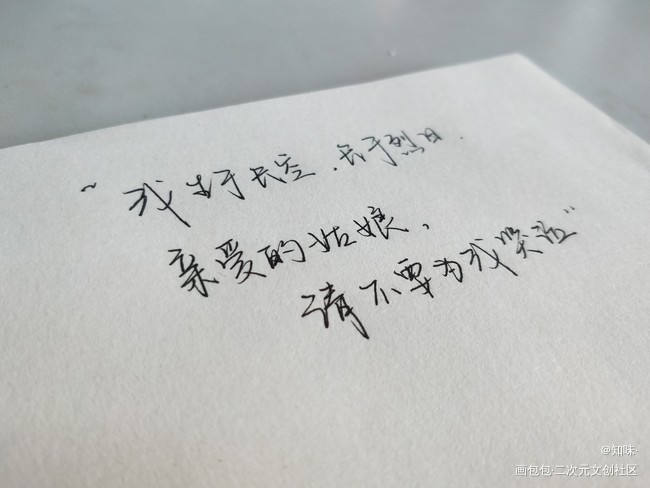 “我生于长空,长于烈日.
亲爱的姑娘,
请不要为我哭泣”
@知味·
画包包·二次元文创社区